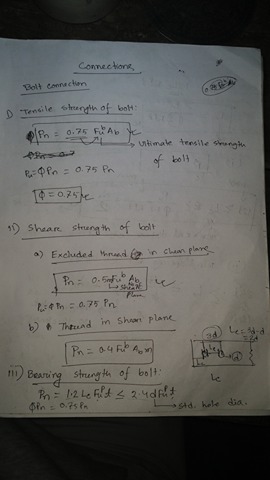 Connections
Bolt connection
0.75 Fuᵇ Ab
i) Tensile strength of bolt:
Pn = 0.75 Fuᵇ Ab
Ultimate tensile strength
of bolt
Pu = ϕPn = 0.75 Pn
ϕ = 0.75
ii) Shear strength of bolt
a) Excluded thread in shear plane
Pn = 0.5m Fuᵇ Ab
Shear
Plane
Pu = ϕPn = 0.75 Pn
b) Thread in shear plane
Pn = 0.4 Fuᵇ Ab m
3d Lc = 3d-d
= 2d
Lc
d
Lc
iii) Bearing strength of bolt:
Pn = 1.2 Lc Fuᵖ t ≤ 2.4 d Fuᵖ t
ϕPn = 0.75 Pn
std. hole dia.